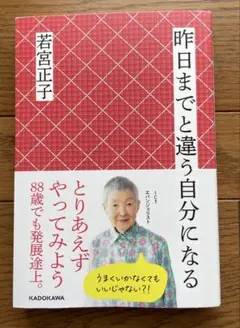 昨日までと違う自分になる
若宮正子
とりあえず
やってみよう
88歳でも発展途上。
エバンジェリスト
うまくいかなくても
いいじゃない?!
KADOKAWA